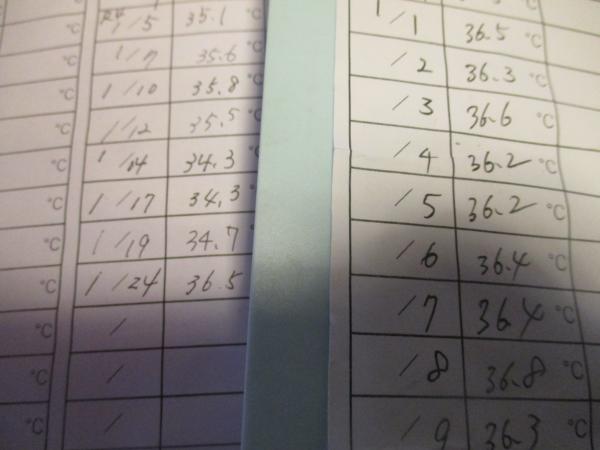 1/5 35.1 ℃
1/7 35.6 ℃
1/10 35.8 ℃
1/12 35.5 ℃
1/14 34.3 ℃
1/17 34.3
1/19 34.7
1/24 36.5
/
/
/
1/1 36.5 ℃
/2 36.3 ℃
/3 36.6 ℃
/4 36.2 ℃
/5 36.2 ℃
/6 36.4 ℃
/7 36.4 ℃
/8 36.8 ℃
/9 36.3 ℃
℃
℃
℃
℃
℃
℃
℃
℃
℃
℃
℃